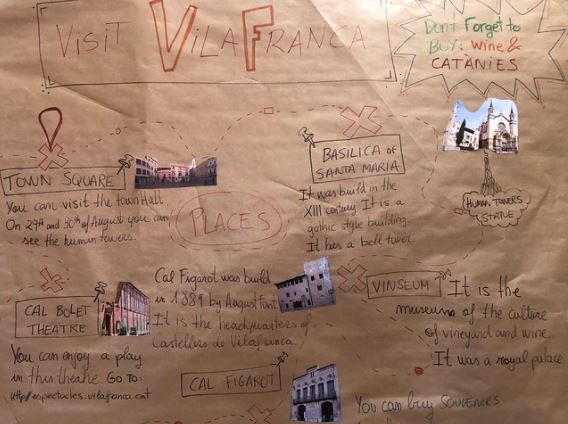 VISIT VILAFRANCA
Don't Forget to
BUY: Wine &
CATÀNIES
TOWN SQUARE
You can visit the town Hall.
On 29th and 30th of August you can
see the human towers.
PLACES
BASILICA OF
SANTA MARIA
It was build in the
XIII century It is a
gothic style building.
It has a bell tower.
HUMAN TOWERS
STATUE
CAL BOLET
THEATRE
You can enjoy a play
in this theatre Go to:
http://espectacles.vilafranca.cat
Cal Figarot was build
in 1889 by August Font
It is the headquarters of
Castellers de Vilafranca.
CAL FIGAROT
VINSEUM
It is the
museums of the culture
of vineyard and wine
It was a royal palace
You can buy SOUVENIRS